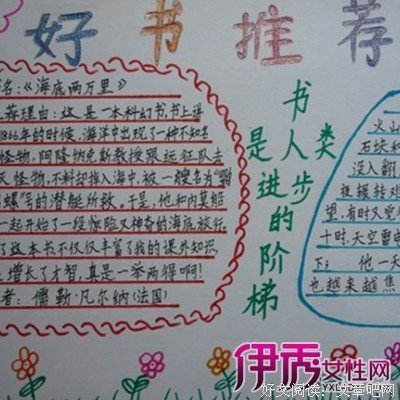 好书推荐
名:《海底两万里》
荐理由:这是一本科幻书,书上讲
1866年的时候,海洋中出现了一种不知名
怪物,阿隆纳克斯教授跟远征队去
灭怪物,不料却掉入海中,被一艘名为“鹦
鹉螺”号的潜艇所救。于是,他和内莫船
一起开始了一段惊险又神奇的海底旅行
了这本书不仅仅丰富了我的课外知识
增长了才智,真是一举两得啊!
者: 儒勒·凡尔纳(法国)
书
是人类
进步
的
阶
梯
火山
石块和
没入翻
夜辗转难
望,有时又
十时,天空雷电
下; 他一天
也越来越焦
伊秀女性网
好文阅读:文章吧网